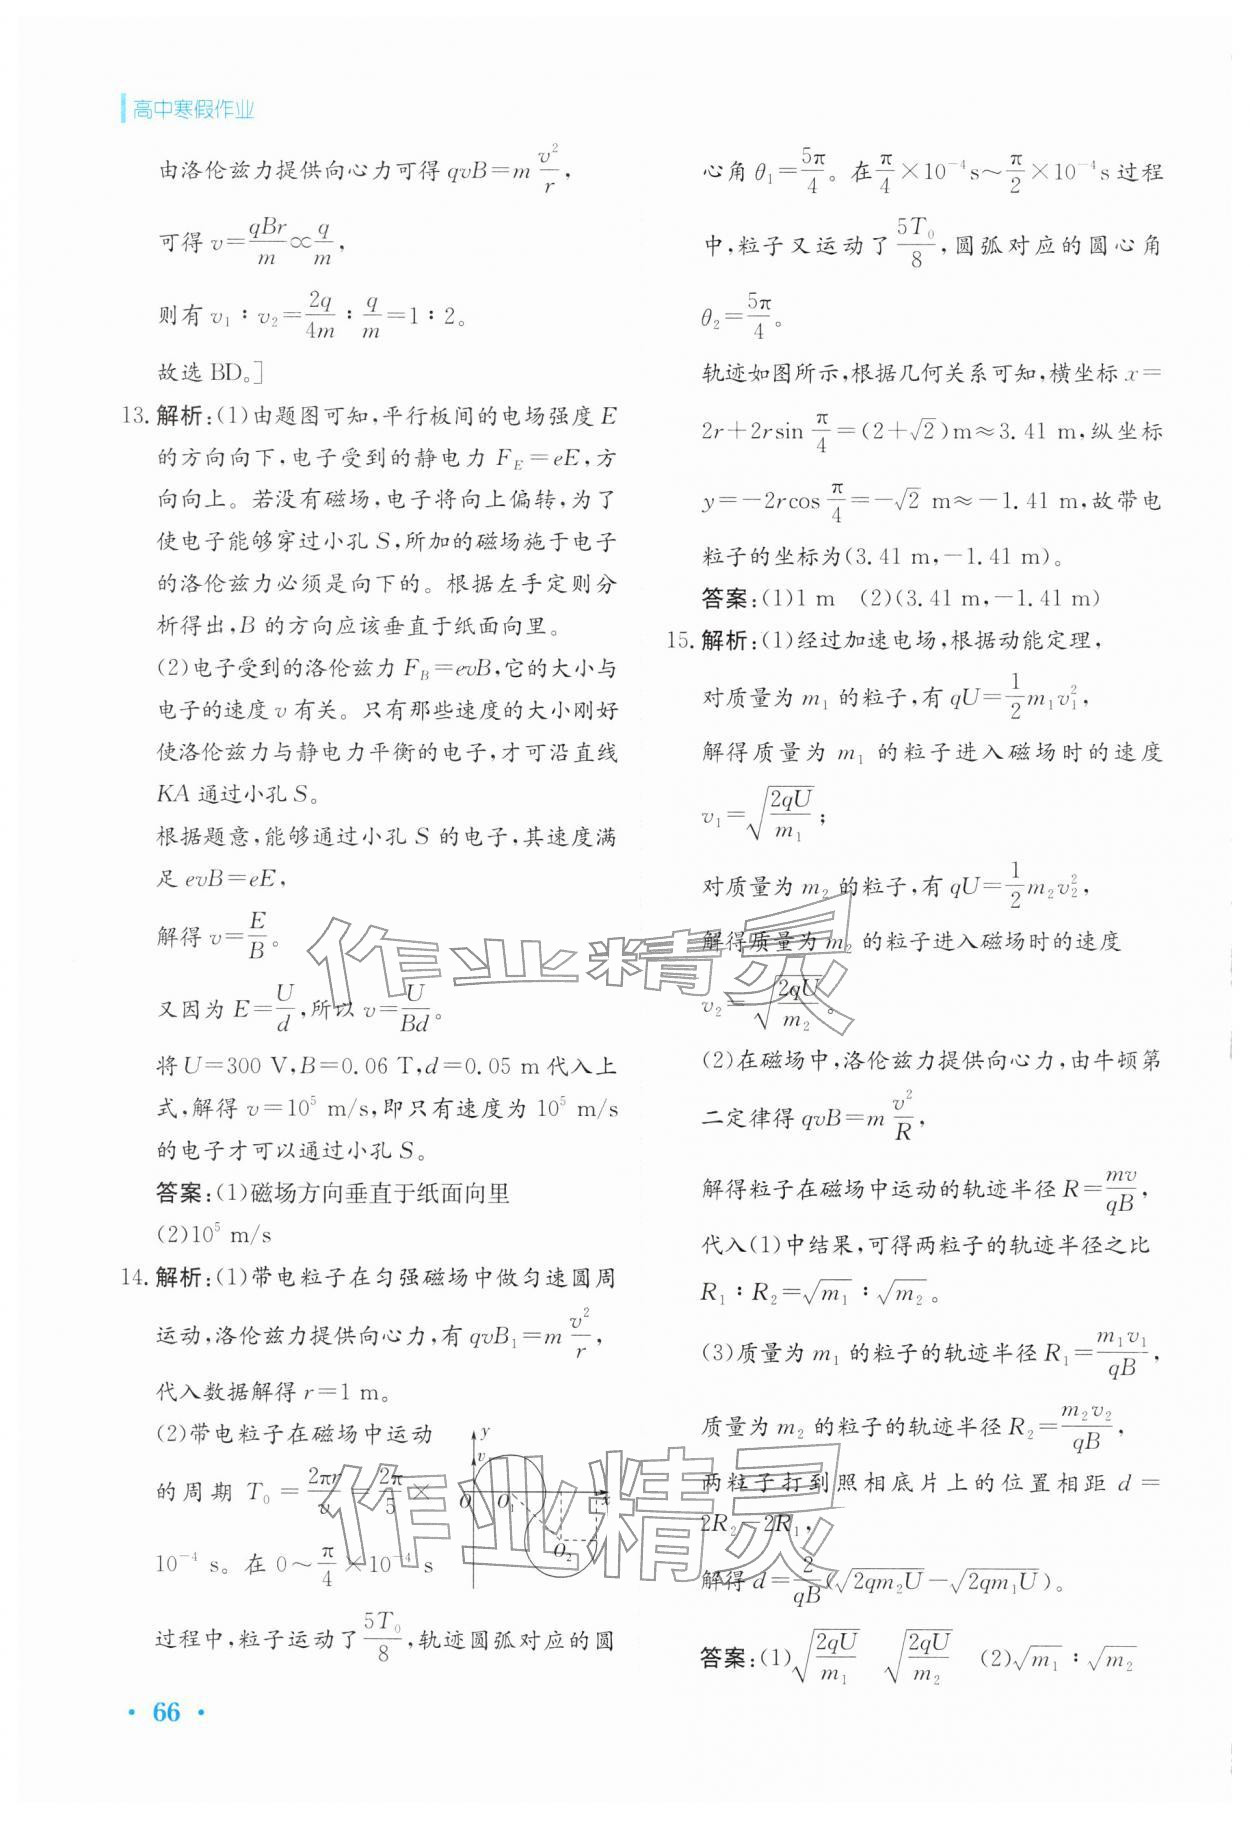 高中寒假作业
由洛伦兹力提供向心力可得 qvB=m v²/r，
可得 v=qBr/m∝q/m，
则有 v₁∶v₂=2q/4m∶q/m=1∶2。
故选 BD。]
13. 解析：(1)由题图可知，平行板间的电场强度 E
的方向向下，电子受到的静电力 F_E=eE，方
向向上。若没有磁场，电子将向上偏转，为了
使电子能够穿过小孔 S，所加的磁场施于电子
的洛伦兹力必须是向下的。根据左手定则分
析得出，B 的方向应该垂直于纸面向里。
(2)电子受到的洛伦兹力 F_B=evB，它的大小与
电子的速度 v 有关。只有那些速度的大小刚好
使洛伦兹力与静电力平衡的电子，才可沿直线
KA 通过小孔 S。
根据题意，能够通过小孔 S 的电子，其速度满
足 evB=eE，
解得 v=E/B。
又因为 E=U/d，所以 v=U/Bd。
将 U=300 V，B=0.06 T，d=0.05 m 代入上
式，解得 v=10⁵ m/s，即只有速度为 10⁵ m/s
的电子才可以通过小孔 S。
答案：(1)磁场方向垂直于纸面向里
(2)10⁵ m/s
14. 解析：(1)带电粒子在匀强磁场中做匀速圆周
运动，洛伦兹力提供向心力，有 qvB₁=m v²/r，
代入数据解得 r=1 m。
(2)带电粒子在磁场中运动
的周期 T₀=2πr/v=2π/5×
10⁻⁴ s。在 0～π/4×10⁻⁴ s
y
v
O O₁ x
O₂
过程中，粒子运动了5T₀/8，轨迹圆弧对应的圆
心角 θ₁=5π/4。在π/4×10⁻⁴ s～π/2×10⁻⁴ s 过程
中，粒子又运动了5T₀/8，圆弧对应的圆心角
θ₂=5π/4。
轨迹如图所示，根据几何关系可知，横坐标 x=
2r+2rsin π/4=(2+√2)m≈3.41 m，纵坐标
y=-2rcos π/4=-√2 m≈-1.41 m，故带电
粒子的坐标为(3.41 m，-1.41 m)。
答案：(1)1 m (2)(3.41 m，-1.41 m)
15. 解析：(1)经过加速电场，根据动能定理，
对质量为 m₁ 的粒子，有 qU=1/2 m₁v₁²，
解得质量为 m₁ 的粒子进入磁场时的速度
v₁=√(2qU/m₁)；
对质量为 m₂ 的粒子，有 qU=1/2 m₂v₂²，
解得质量为 m₂ 的粒子进入磁场时的速度
v₂=√(2qU/m₂)。
(2)在磁场中，洛伦兹力提供向心力，由牛顿第
二定律得 qvB=m v²/R，
解得粒子在磁场中运动的轨迹半径 R=mv/qB，
代入(1)中结果，可得两粒子的轨迹半径之比
R₁∶R₂=√m₁∶√m₂。
(3)质量为 m₁ 的粒子的轨迹半径 R₁=m₁v₁/qB，
质量为 m₂ 的粒子的轨迹半径 R₂=m₂v₂/qB，
两粒子打到照相底片上的位置相距 d=
2R₂-2R₁，
解得 d=2/qB(√(2qm₂U)-√(2qm₁U))。
答案：(1)√(2qU/m₁) √(2qU/m₂) (2)√m₁∶√m₂
作业精灵
作业精灵
· 66 ·